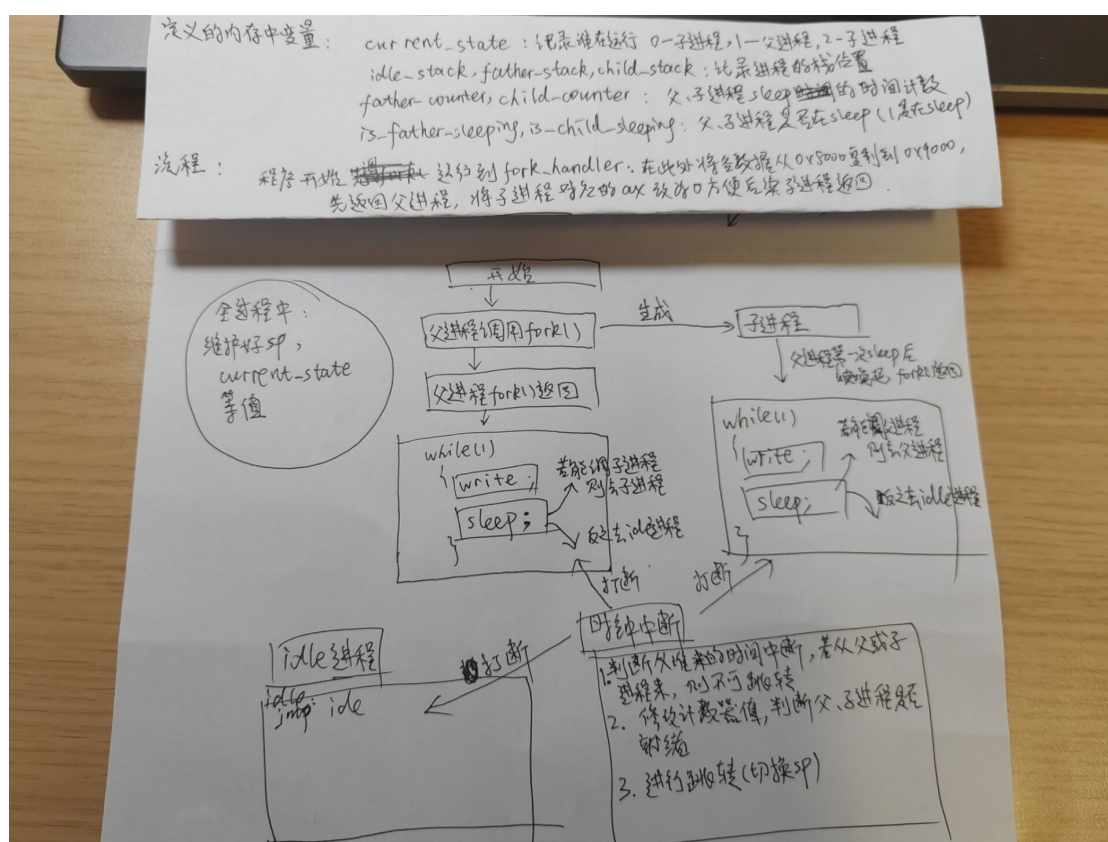 定义的内存中变量：
current_state：记录谁在运行 0-子进程，1-父进程，2-子进程
idle_stack, father_stack, child_stack：记录进程的栈位置
father_counter, child_counter：父、子进程sleep的时间计数
is_father_sleeping, is_child_sleeping：父、子进程是否在sleep（1是在sleep）
流程：
程序开始 运行到fork_handler. 在此处将全数据从0x8000复制到0x9000，
先返回父进程，将子进程对应的ax改为0方便后续子进程返回.
开始
全过程中：
维护好sp，
current_state
等值
父进程调用fork()
生成
子进程
父进程第一次sleep后
fork()返回
父进程fork()返回
while(1)
{ write;
若能调子进程
则去子进程
sleep;
反之去idle进程
}
while(1)
{ write;
父进程
则去父进程
sleep;
反之去idle进程
}
打断
打断
时钟中断
idle进程
打断
idle:
jmp idle
1.判断从谁来的时间中断，若从父或子
进程来，则不可跳转
2. 修改计数器值，判断父、子进程是否
就绪
3. 进行跳转（切换sp）